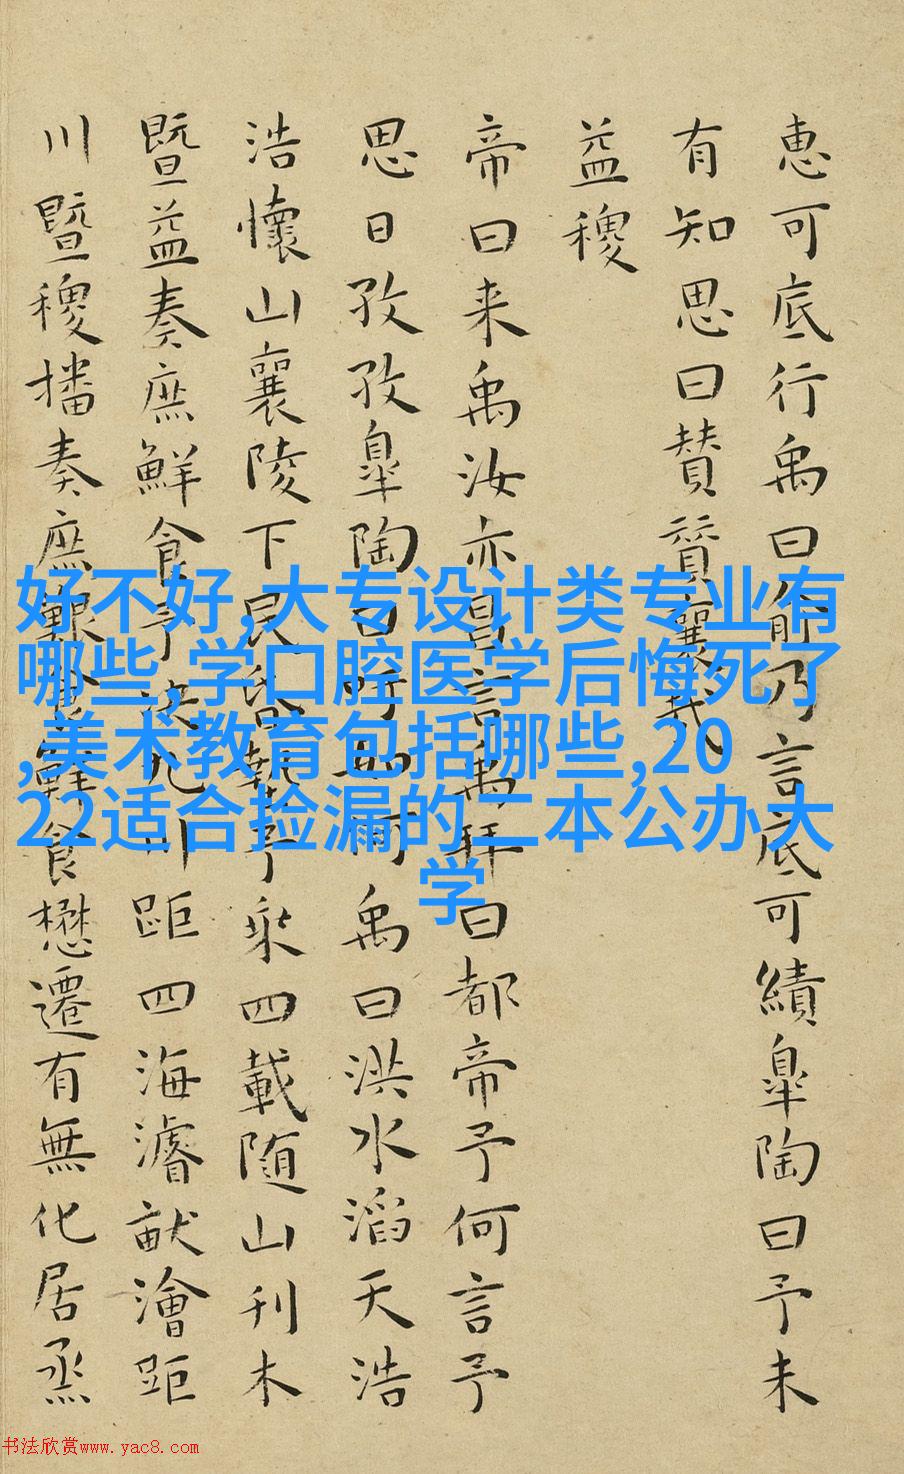 惠可底行禹曰俞乃言底可績皐陶曰予未
有知思曰贊贊襄哉
益稷
帝曰来禹汝亦昌言禹拜曰都帝予何言予
思日孜孜皐陶曰吁如何禹曰洪水滔天浩
浩懷山襄陵下民昏墊予乘四載随山刊木
暨益奏庶鮮食予决九川距四海濬畎澮距
川暨稷播奏庶艱食鮮食懋遷有無化居烝
好不好,大专设计类专业有
哪些,学口腔医学后悔死了
,美术教育包括哪些,20
22适合捡漏的二本公办大
学
书法欣赏www.yac8.com